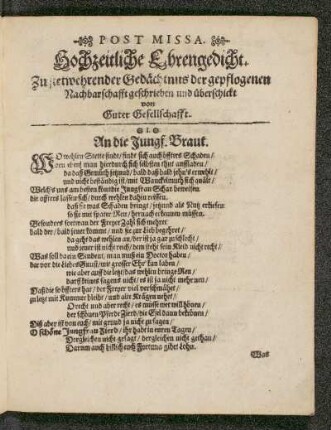 POST MISSA.
Hochzeitliche Ehrengedicht.
Zu jetwehrender Gedächtnus der gepflogenen
Nachbarschafft geschrieben und überschickt
von
Guter Gesellschafft.
I.
An die Jungf. Braut.
WO wahlen Statt sindt / findt sich auch öffters Schaden /
wen ehret man hierdurch sich selbsten thut auffladen /
da daß Gemüth sehnet / bald daß bald jehn's erwehlt /
und nicht beständig ist / mit Wanckelmuth sich quält /
Welch's uns am besten kan die Jungfrau Schar beweisen
die öffters lassen sich / durch wehlen dahin reissen.
daß ihr was Schaden bringt / jehund als Nutz erkiesen
so sie mit später Reu / hernach erkennen müssen.
Besonders so etwan der Freyer Zahl sich mehret
bald der / bald jener komt / und sie zur Lieb begehret /
da geht das wehlen an / der ist ja gar zu schlecht /
und jener ist nicht reich / dem steht sein Kleid nicht recht /
Was soll dan ein Student, man muß ein Doctor haben /
der vor die Liebes Gunst / mit grosser Ehr' kan laben /
wie aber auff die letzt das wehlen bringe Reu /
darff keines sagens nicht / es ist ja nicht mehr neu /
Daß die so öffters hat / der Freyer viel verschmähet /
zuletzt mit Kummer bleibt / und als
O recht und aber recht / es müste wer will hören /
der schönen Pferde Zierd / die Esel dann bethören /
Diß aber ist von euch / mit grund ja nicht zu sagen /
O schöne Jungfrau Zierd / ihr habt in euren Tagen /
Dergleichen nicht gesagt / dergleichen nicht gethan /
Darum auch billich euch Fortuna gibet Lohn.
Was